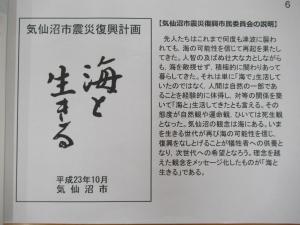 6
気仙沼市震災復興計画
海と
生きる
平成23年10月
気仙沼市
【気仙沼市震災復興市民委員会の説明】
先人たちはこれまで何度も津波に襲わ
れても、海の可能性を信じて再起を果たし
てきた。人智の及ばぬ壮大な力としながら
も、海を敵視せず、積極的に関わりあって
暮らしてきた。それは単に「海で」生活して
いたのではなく、人間は自然の一部であ
ることを経験的に体得し、対等の関係を築
いて「海と」生活してきたとも言える。その
態度が自然観や運命観、ひいては死生観
となった。気仙沼の観念は海にある。いま
を生きる世代が再び海の可能性を信じ、
復興をなしとげることが犠牲者への供養と
なり、次世代への希望となろう。理念を越
えた観念をメッセージ化したものが「海と
生きる」である。